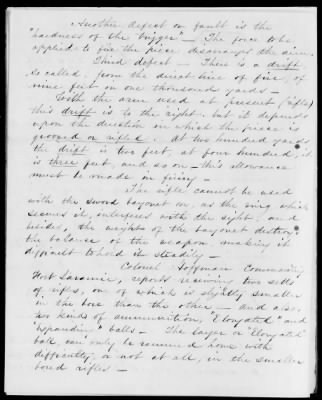 Another defect or fault is the
"hardness of the trigger" — The force to be
applied to fire the piece disarranges the aim.
Third defect — There is a drift
so called, from the direct line of fire, of
nine feet on one thousand yards —
With the arm used at present (rifle)
this drift is to the right, but it depends
upon the direction in which the piece is
grooved or rifled. At two hundred yards
the drift is two feet, at four hundred, it
is three feet, and so on — this allowance
must be made in firing —
The rifle cannot be used
with the sword bayonet on, as the ring which
secures it, interferes with the sight, and
besides, the weight of the bayonet destroys
the balance of the weapon, making it
difficult to hold it steadily —
Colonel Hoffman Commanding
Fort Laramie, reports receiving two sets
of rifles, one of which is slightly smaller
in the bore than the other — and also,
two kinds of ammunition, "Elongated" and
"expanding" balls — The larger or "Elongated"
ball, can only be rammed home with
difficulty, or not at all, in the smaller
bored rifles —